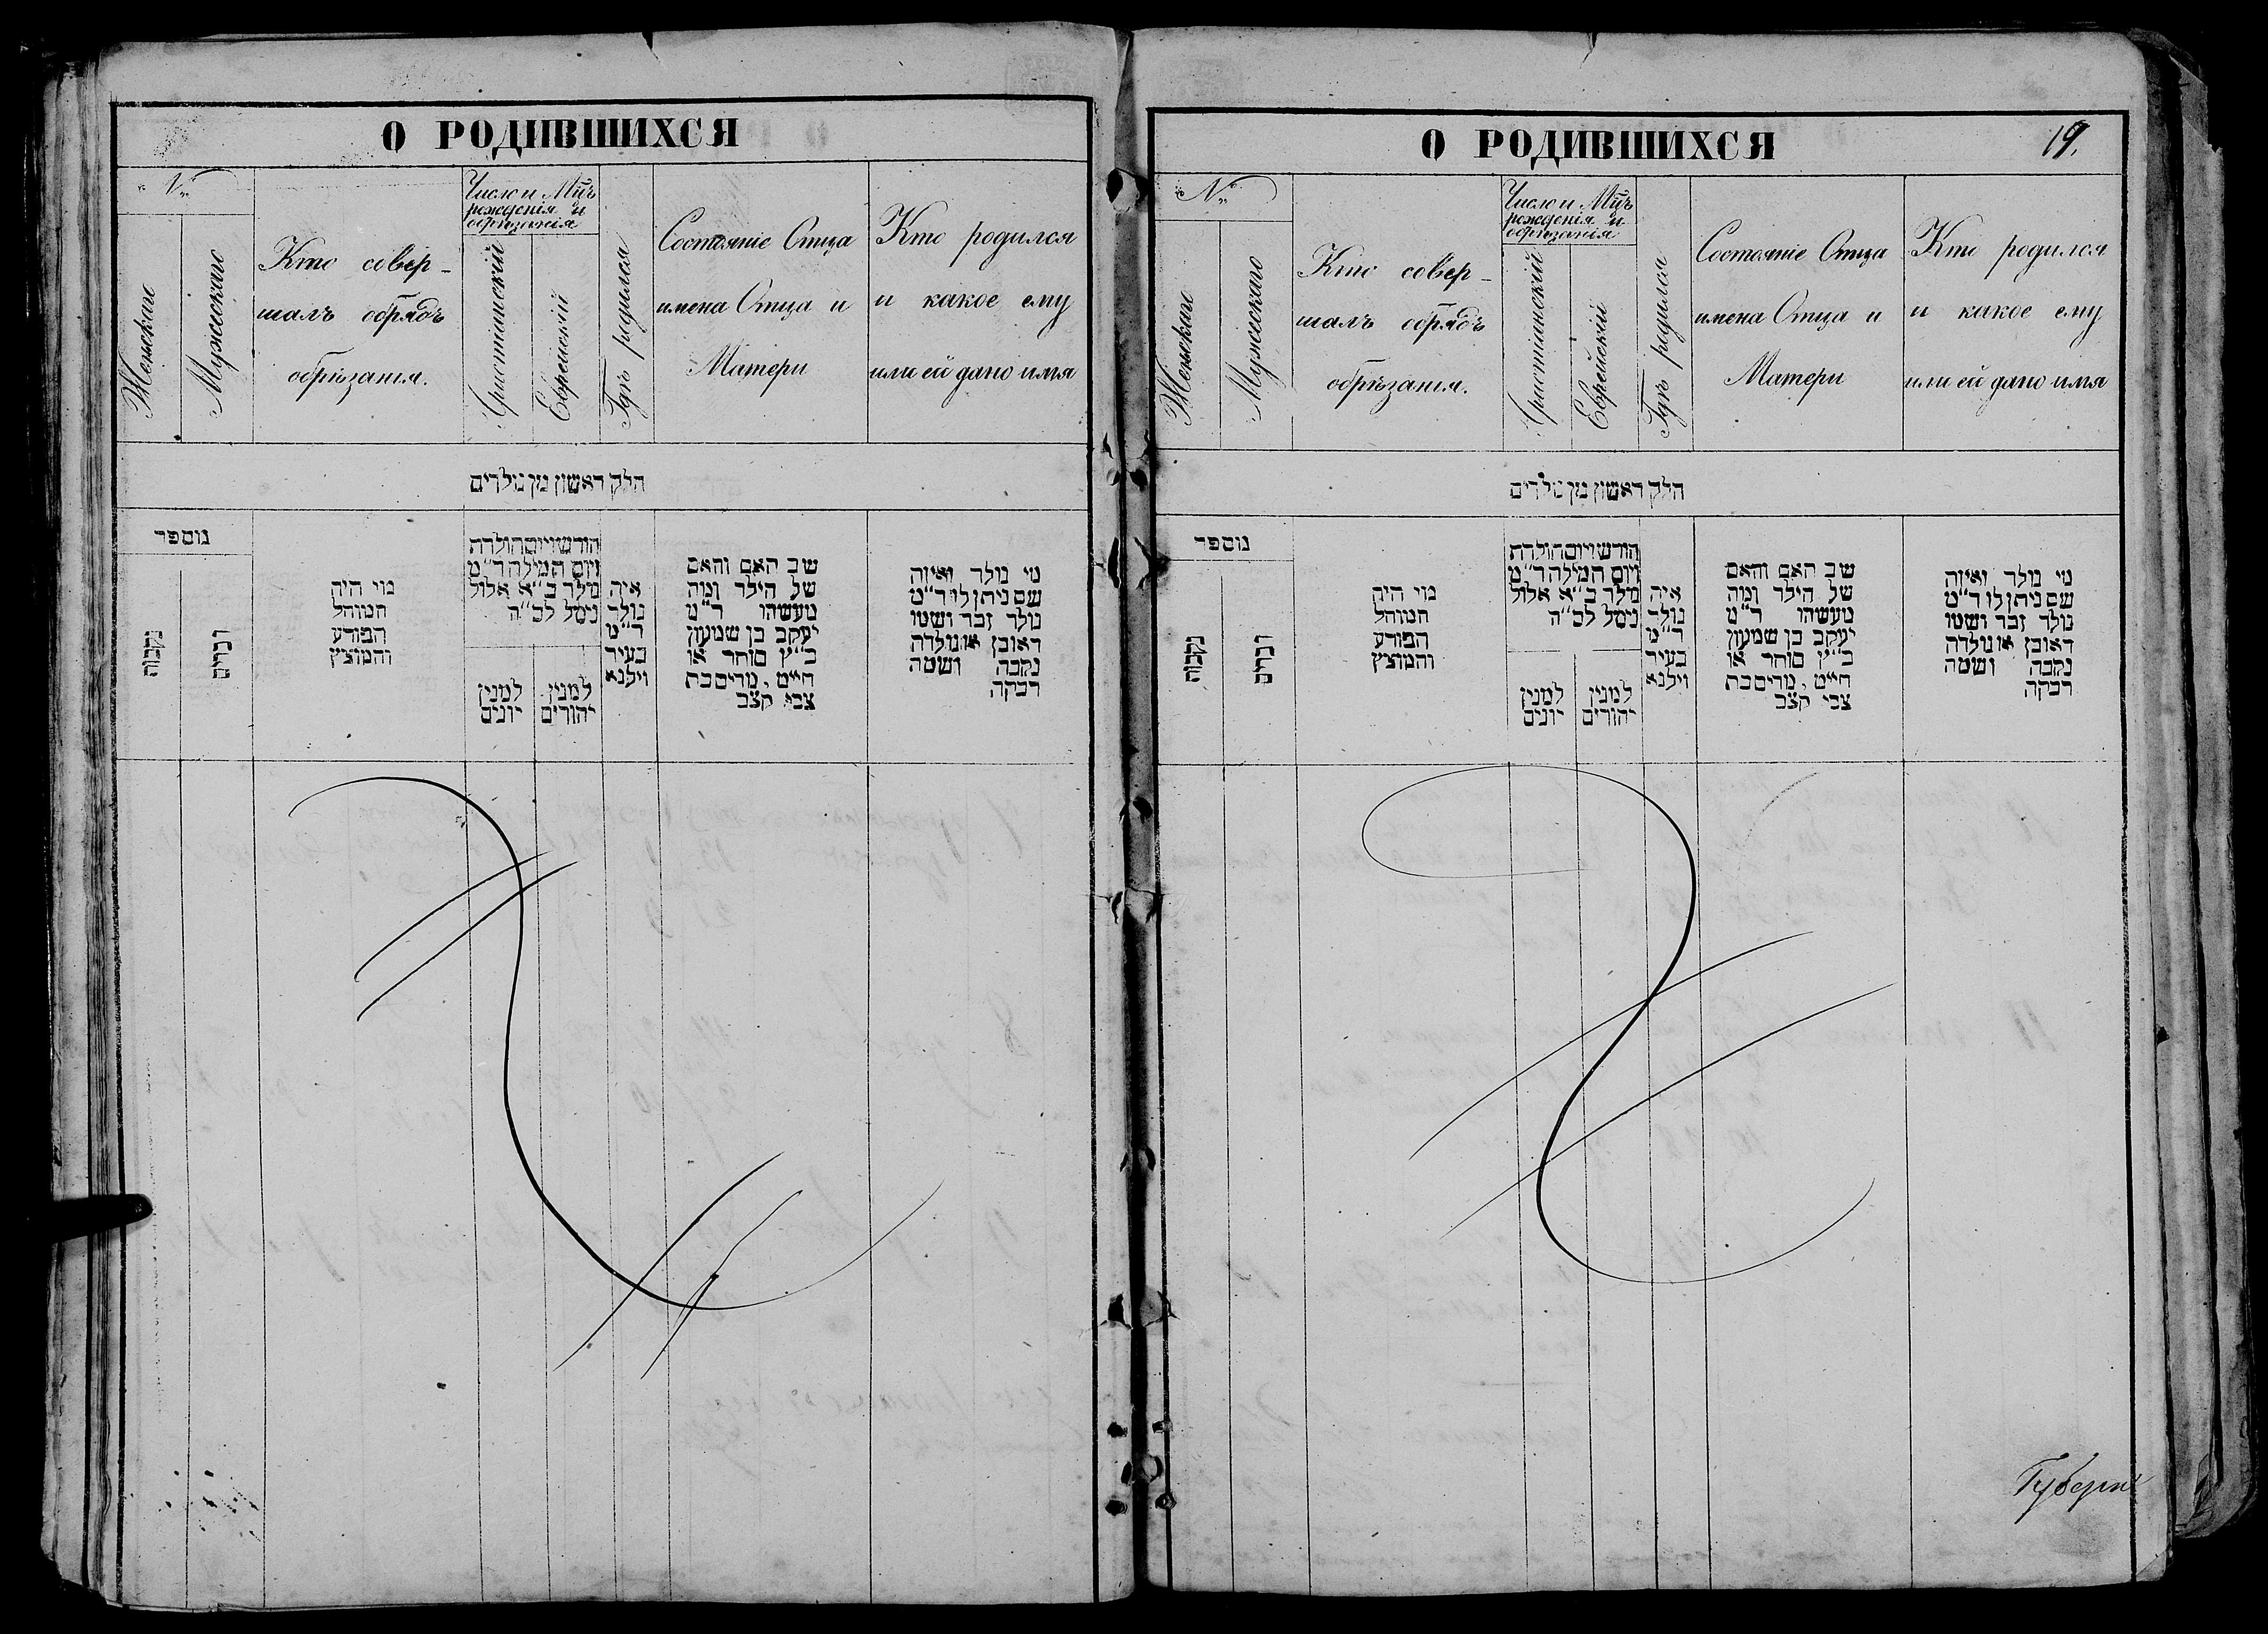 О РОДИВШИХСЯ
№
Женскаго
Мужескаго
Кто совер-
шалъ обрядъ
обрѣзанія.
Число и Мцъ
рожденія и
обрѣзанія
Христіанскій
Еврейскій
Гдѣ родился
Состояніе Отца
имена Отца и
Матери
Кто родился
и какое ему
или ей дано имя
חלק ראשון מן נולדים
נוספר
נקבות
זכרים
מי היה
המוהל
הפורע
והמוצץ
חודש ויום הולדת
ויום המילה ד"מ
נולד ב"א אלול
נימל לב"ה
למנין
יונים
למנין
יהודים
איה
נולד
ד"מ
בעיר
וילנא
שב האם והאם
של הילד ומה
מעשהו ד"מ
יעקב בן שמעון
כ"ץ סוחר או
חייט, מרים בת
צבי קצב
מי נולד ואיזה
שם ניתן לו ד"מ
נולד זכר ושמו
ראובן או נולדה
נקבה ושמה
רבקה
О РОДИВШИХСЯ
19.
№
Женскаго
Мужескаго
Кто совер-
шалъ обрядъ
обрѣзанія.
Число и Мцъ
рожденія и
обрѣзанія
Христіанскій
Еврейскій
Гдѣ родился
Состояніе Отца
имена Отца и
Матери
Кто родился
и какое ему
или ей дано имя
חלק ראשון מן נולדים
נוספר
נקבות
זכרים
מי היה
המוהל
הפורע
והמוצץ
חודש ויום הולדת
ויום המילה ד"מ
נולד ב"א אלול
נימל לב"ה
למנין
יונים
למנין
יהודים
איה
נולד
ד"מ
בעיר
וילנא
שב האם והאם
של הילד ומה
מעשהו ד"מ
יעקב בן שמעון
כ"ץ סוחר או
חייט, מרים בת
צבי קצב
מי נולד ואיזה
שם ניתן לו ד"מ
נולד זכר ושמו
ראובן או נולדה
נקבה ושמה
רבקה
Губерн